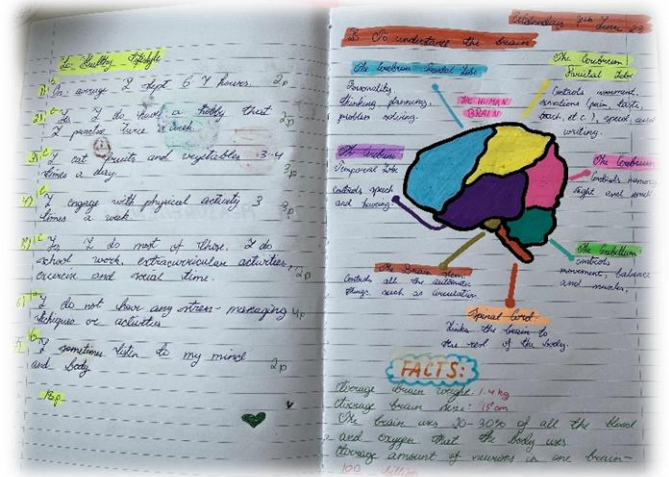 Healthy Lifestyle
1) On average I slept 6 7 hours. 2p
I do have a hobby that 2p
I practice twice a week.
I eat fruits and vegetables 3-4
times a day. 3p
4) I engage with physical activity 3 3p
times a week.
I do most of those. I do
school work, extracurricular activities,
exercise and social time. 2p
6) I do not have any stress-managing 4p
techiques or activities
I sometimes listen to my mind
and body 2p
To understand the brain
The Cerebrum Frontal Lobe
Personality,
thinking, planning,
problem solving.
THE HUMAN
BRAIN
The Cerebrum
Parietal Lobe
Controls movement,
sensations (pain, taste,
touch, etc.), speech, and
writing.
Temporal Lobe
Controls speech
and hearing
The Cerebrum
Controls memory,
sight and
The Cerebellum
controls
movement, balance
and muscles.
The Brain Stem
Controls all the automatic
things, such as circulation
Spinal Cord
Links the brain to
the rest of the body.
FACTS:
Average brain weight: 1.4 kg
Average brain size: 15 cm
The brain uses 20-30% of all the blood
and oxygen that the body uses
Average amount of neurons in one brain-
100 billion